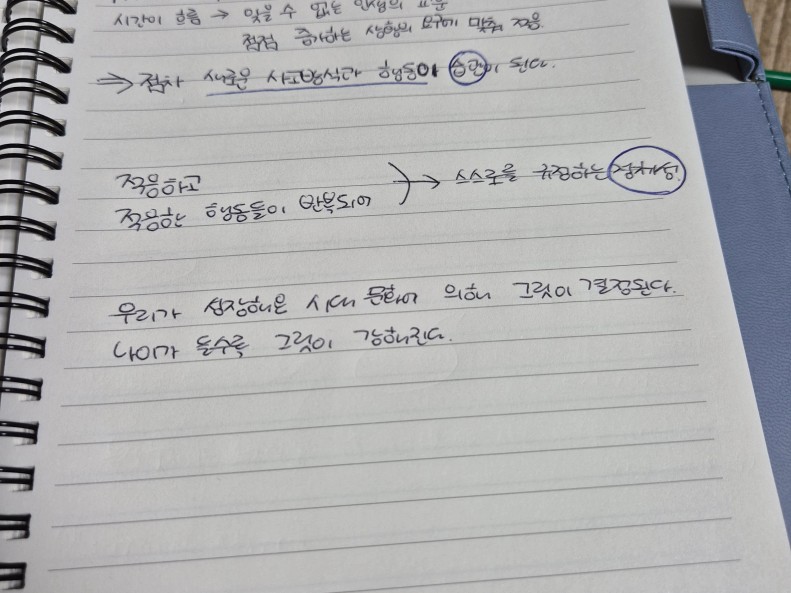 시간이 흐름 → 잊을 수 없는 인생의 교훈
점점 증가하는 생활의 요구에 맞춰 적응.
⇒ 점차 새로운 사고방식과 행동이 습관이 된다.
적응하고
적응한 행동들이 반복되어 → 스스로를 규정하는 정체성
우리가 성장해온 시대 문화에 의해 그것이 결정된다.
나이가 들수록 그것이 강해진다.